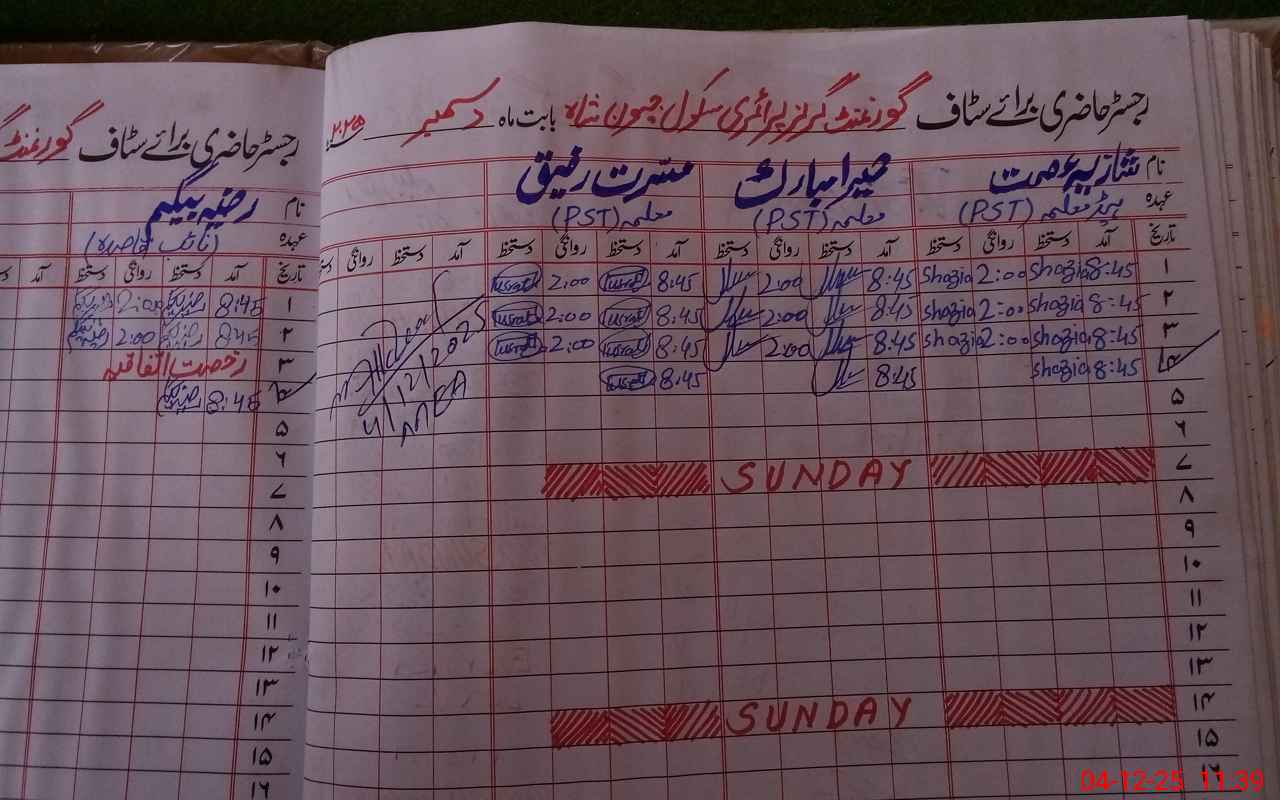 رجسٹر حاضری برائے سٹاف گورنمنٹ گرلز پرائمری سکول جیون شاہ بابت ماہ دسمبر ۲۰۲۵
نام شازیہ عصمت حمیرا مبارک مسرت رفیق
عہدہ ہیڈ معلمہ (PST) معلمہ (PST) معلمہ (PST)
تاریخ آمد دستخط روانگی دستخط آمد دستخط روانگی دستخط آمد دستخط روانگی دستخط آمد دستخط روانگی
۱ 8:45 Shazia 2:00 Shazia 8:45 2:00 8:45 Musrat 2:00 Musrat
۲ 8:45 Shazia 2:00 Shazia 8:45 2:00 8:45 Musrat 2:00 Musrat
۳ 8:45 Shazia 2:00 Shazia 8:45 2:00 8:45 Musrat 2:00 Musrat
۴ 8:45 Shazia 8:45 8:45 Musrat
4/12/2025
MEA
۵
۶
۷ SUNDAY
۸
۹
۱۰
۱۱
۱۲
۱۳
۱۴ SUNDAY
۱۵
۱۶
رجسٹر حاضری برائے سٹاف گورنمنٹ
نام رضیہ بیگم
عہدہ (نائب قاصدہ)
تاریخ آمد دستخط روانگی دستخط آمد
۱ 8:45 رضیہ بیگم 2:00 رضیہ بیگم
۲ 8:45 رضیہ بیگم 2:00 رضیہ بیگم
۳ رخصت اتفاقیہ
۴ 8:45 رضیہ بیگم
۵
۶
۷
۸
۹
۱۰
۱۱
۱۲
۱۳
۱۴
۱۵
۱۶
04-12-25 11:39